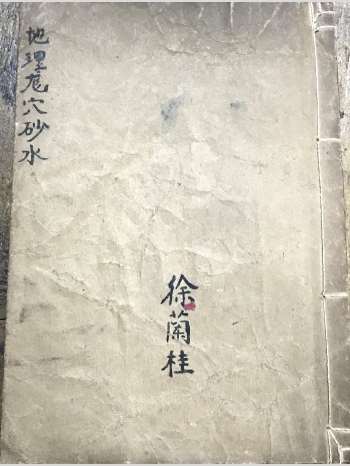 地理龙穴砂水
徐蘭桂